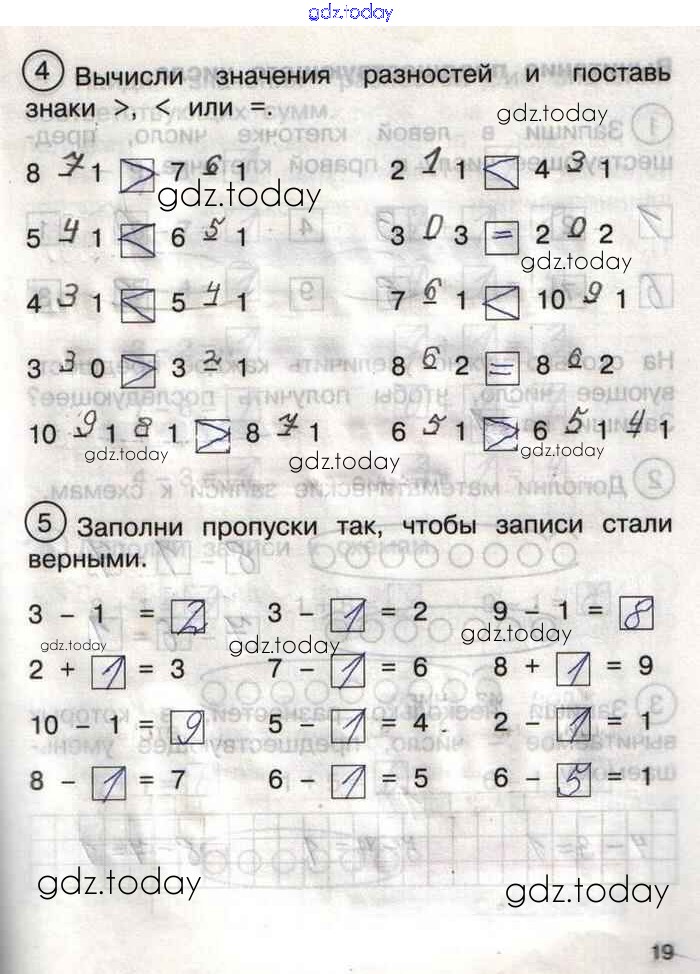 gdz.today
4 Вычисли значения разностей и поставь
знаки >, < или =.
gdz.today
8 – 7 1 > 7 – 6 1 2 – 1 1 < 4 – 3 1
gdz.today
5 – 4 1 < 6 – 5 1 3 – 0 3 = 2 – 0 2
gdz.today
4 – 3 1 < 5 – 4 1 7 – 6 1 < 10 – 9 1
3 – 3 0 > 3 – 2 1 8 – 6 2 = 8 – 6 2
10 – 9 1 – 8 1 > 8 – 7 1 6 – 5 1 > 6 – 5 1 – 4 1
gdz.today gdz.today gdz.today
5 Заполни пропуски так, чтобы записи стали
верными.
3 – 1 = 2 3 – 1 = 2 9 – 1 = 8
gdz.today gdz.today gdz.today
2 + 1 = 3 7 – 1 = 6 8 + 1 = 9
10 – 1 = 9 5 – 1 = 4 2 – 1 = 1
8 – 1 = 7 6 – 1 = 5 6 – 5 = 1
gdz.today gdz.today
19